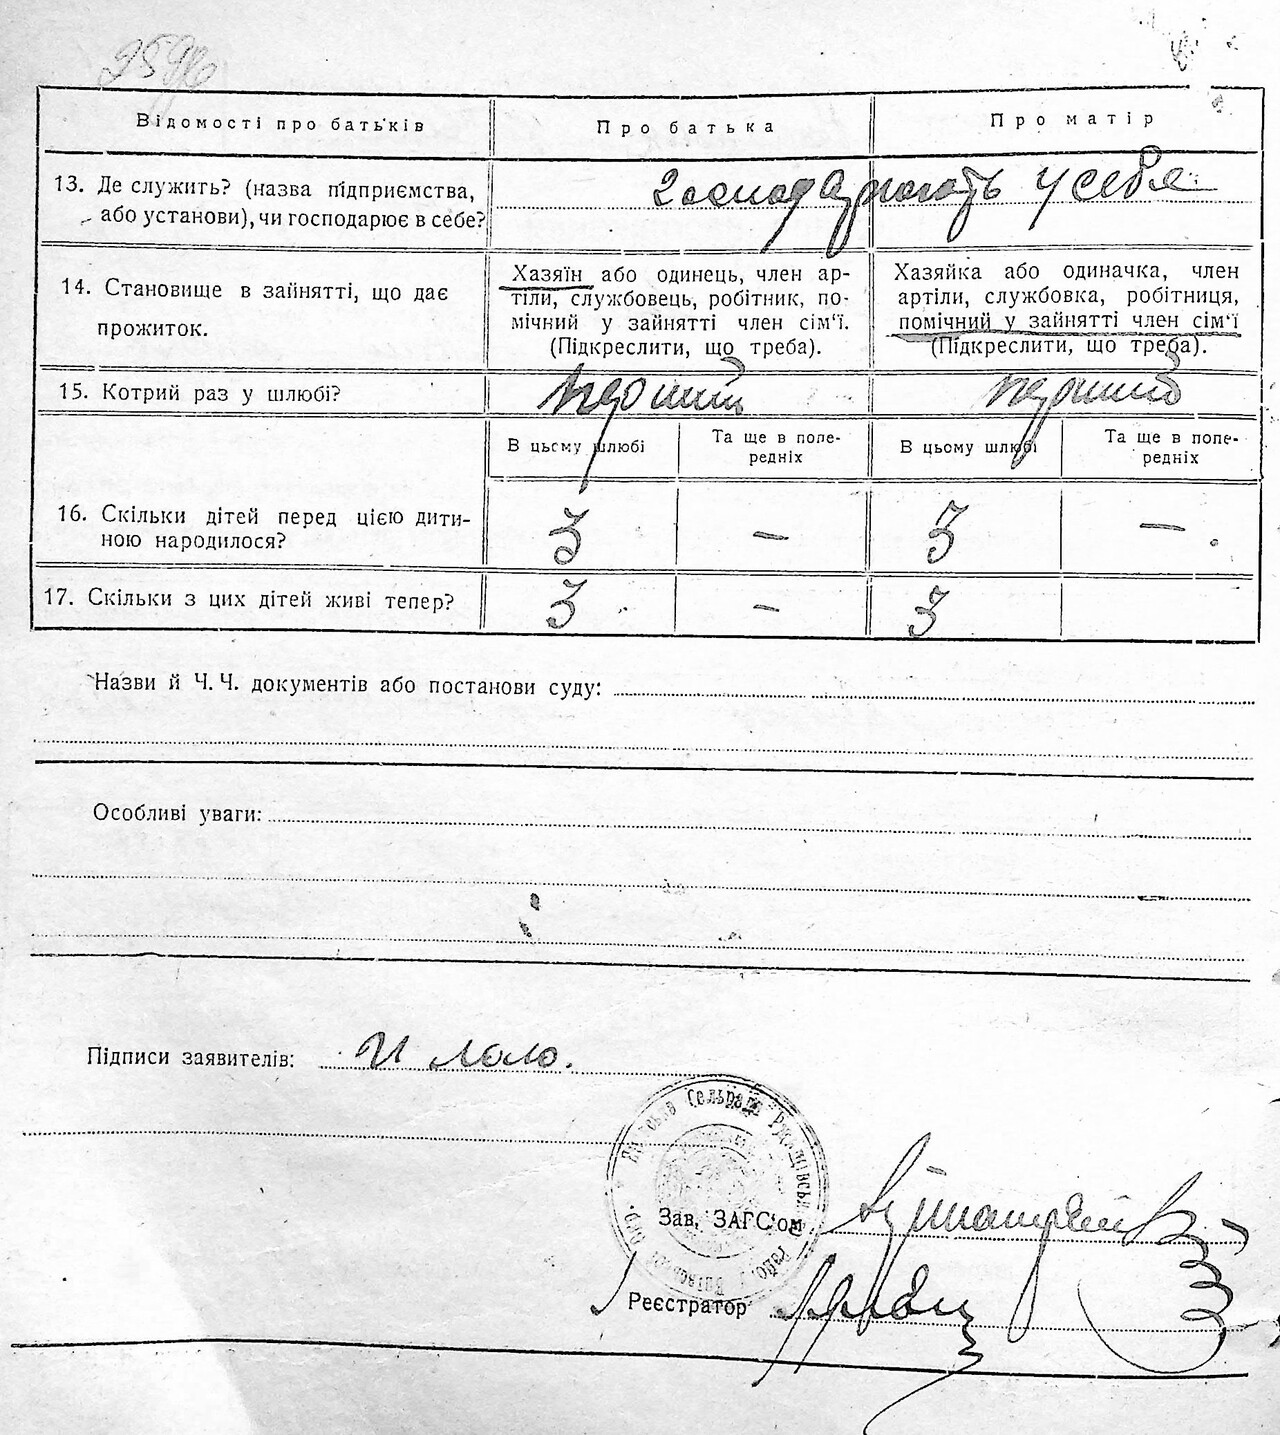 2596
Відомості про батьків
Про батька
Про матір
13. Де служить? (назва підприємства,
або установи), чи господарює в себе?
господарюють у себе
14. Становище в зайнятті, що дає
прожиток.
Хазяїн або одинець, член ар-
тіли, службовець, робітник, по-
мічний у зайнятті член сім'ї.
(Підкреслити, що треба).
Хазяйка або одиначка, член
артіли, службовка, робітниця,
помічний у зайнятті член сім'ї
(Підкреслити, що треба).
15. Котрий раз у шлюбі?
перший
перший
В цьому шлюбі
Та ще в попе-
редніх
В цьому шлюбі
Та ще в попе-
редніх
16. Скільки дітей перед цією дити-
ною народилося?
3
—
3
—
17. Скільки з цих дітей живі тепер?
3
—
3
Назви й Ч. Ч. документів або постанови суду:
Особливі уваги:
Підписи заявителів:
Сельрада
Зав. ЗАГС'ом
Реєстратор